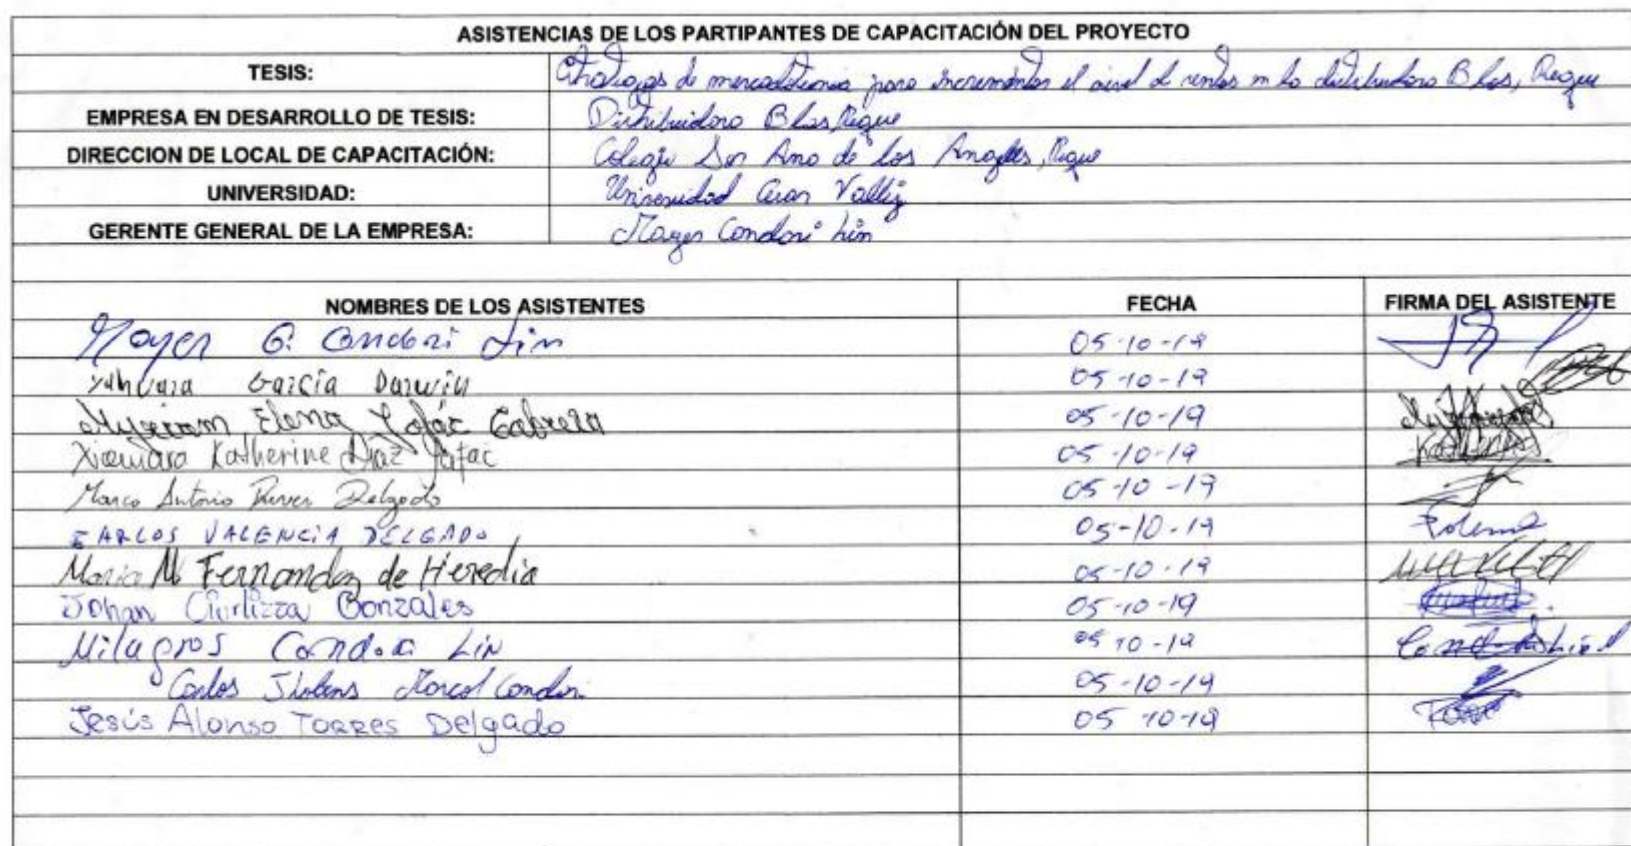 ASISTENCIAS DE LOS PARTIPANTES DE CAPACITACIÓN DEL PROYECTO
TESIS: de para incrementar el nivel de ventas en la distribuidora Blas, Reque
EMPRESA EN DESARROLLO DE TESIS: Distribuidora Blas, Reque
DIRECCION DE LOCAL DE CAPACITACIÓN: Colegio Ana de los Angeles, Reque
UNIVERSIDAD: Universidad Cesar Vallejo
GERENTE GENERAL DE LA EMPRESA: Mayer Condori Lin
NOMBRES DE LOS ASISTENTES FECHA FIRMA DEL ASISTENTE
Mayer G. Condori Lin 05-10-19
García Darwin 05-10-19
Elena Cabrera 05-10-19
Xiomara Katherine Diaz 05-10-19
Marco Antonio Delgado 05-10-19
CARLOS VALENCIA DELGADO 05-10-19
Maria M Fernandez de Heredia 05-10-19
Johan Gonzales 05-10-19
Milagros Lin 05 10-19
Carlos Condori 05-10-19
Jesús Alonso TORRES Delgado 05 10-19